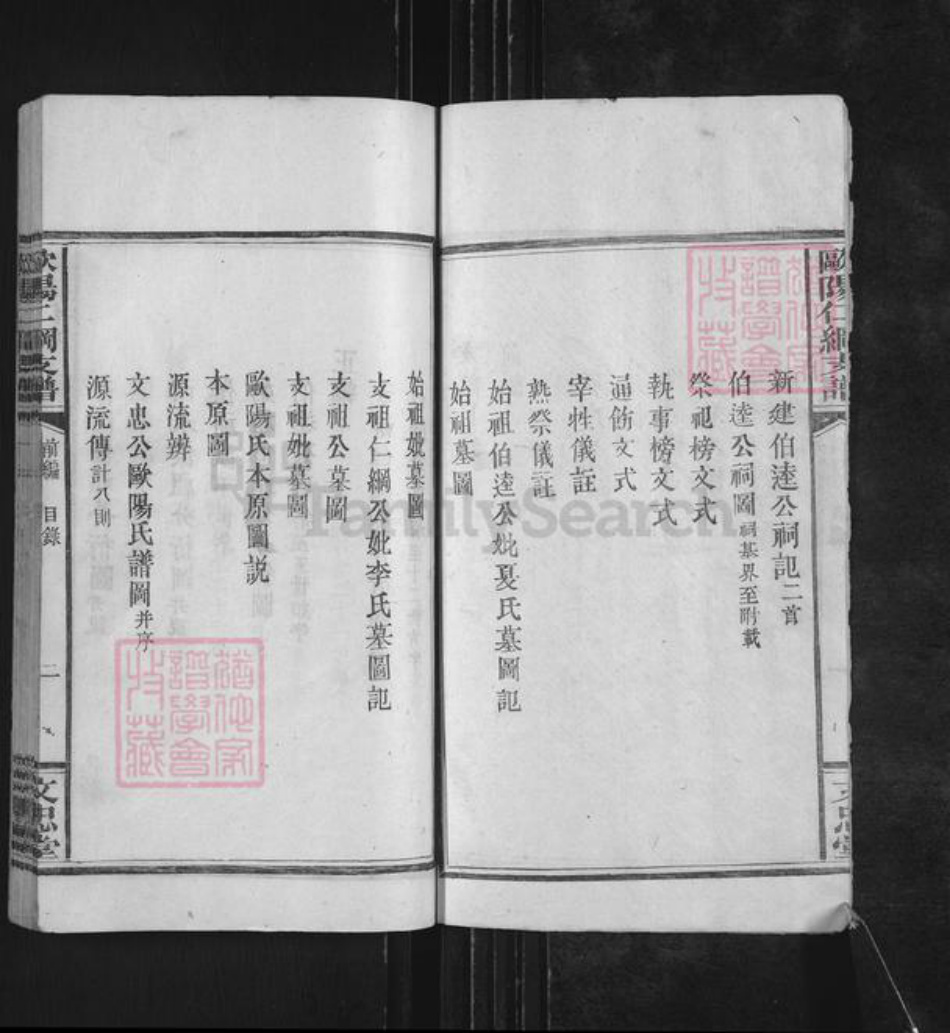 歐陽仁綱支譜
文忠堂
新建伯逵公祠記二首
伯逵公祠圖祠基界至附載
祭祀榜文式
執事榜文式
通飭文式
宰牲儀註
熟祭儀註
始祖伯逵公妣夏氏墓圖記
始祖墓圖
始祖妣墓圖
支祖仁綱公妣李氏墓圖記
支祖公墓圖
支祖妣墓圖
歐陽氏本原圖説
本原圖
源流辨
文忠公歐陽氏譜圖并序
源流傳計八則
歐陽仁綱支譜
前編
目錄
二
文忠堂
FamilySearch